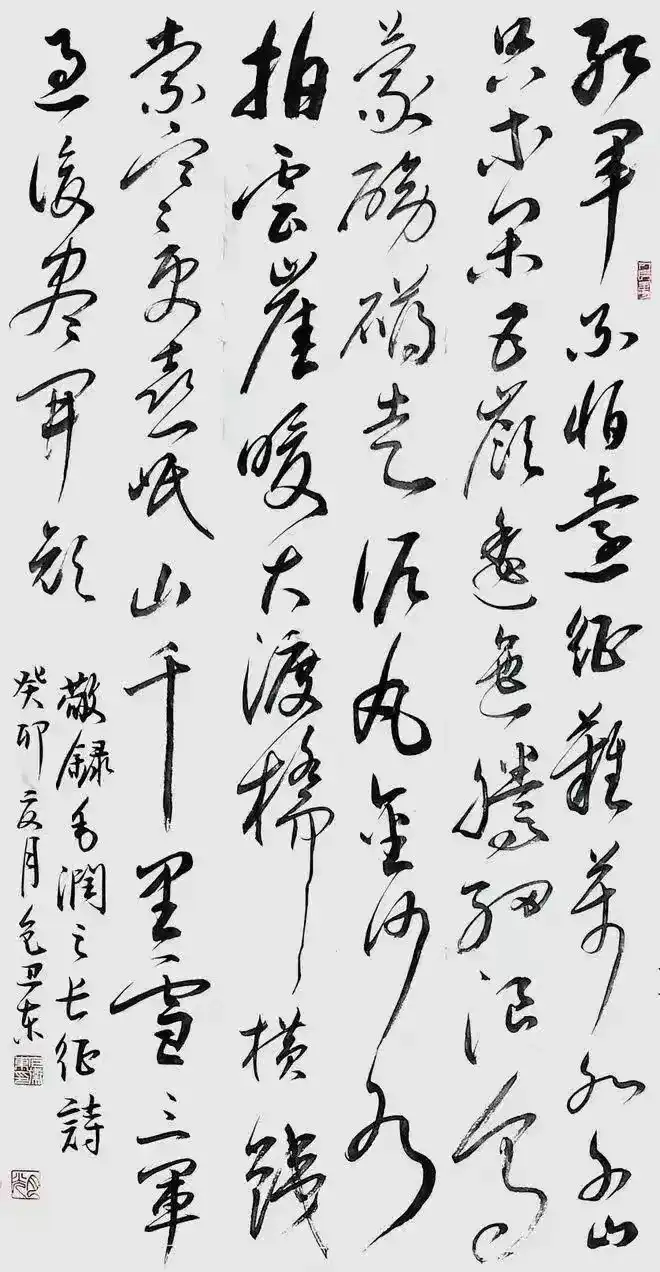 紅軍不怕遠征難萬水千山
只等閑五嶺逶迤騰細浪烏
蒙磅礴走泥丸金沙水
拍雲崖暖大渡橋橫鐵
索寒更喜岷山千里雪三軍
過後盡開顏
敬錄毛潤之長征詩
癸卯夏月包卫东